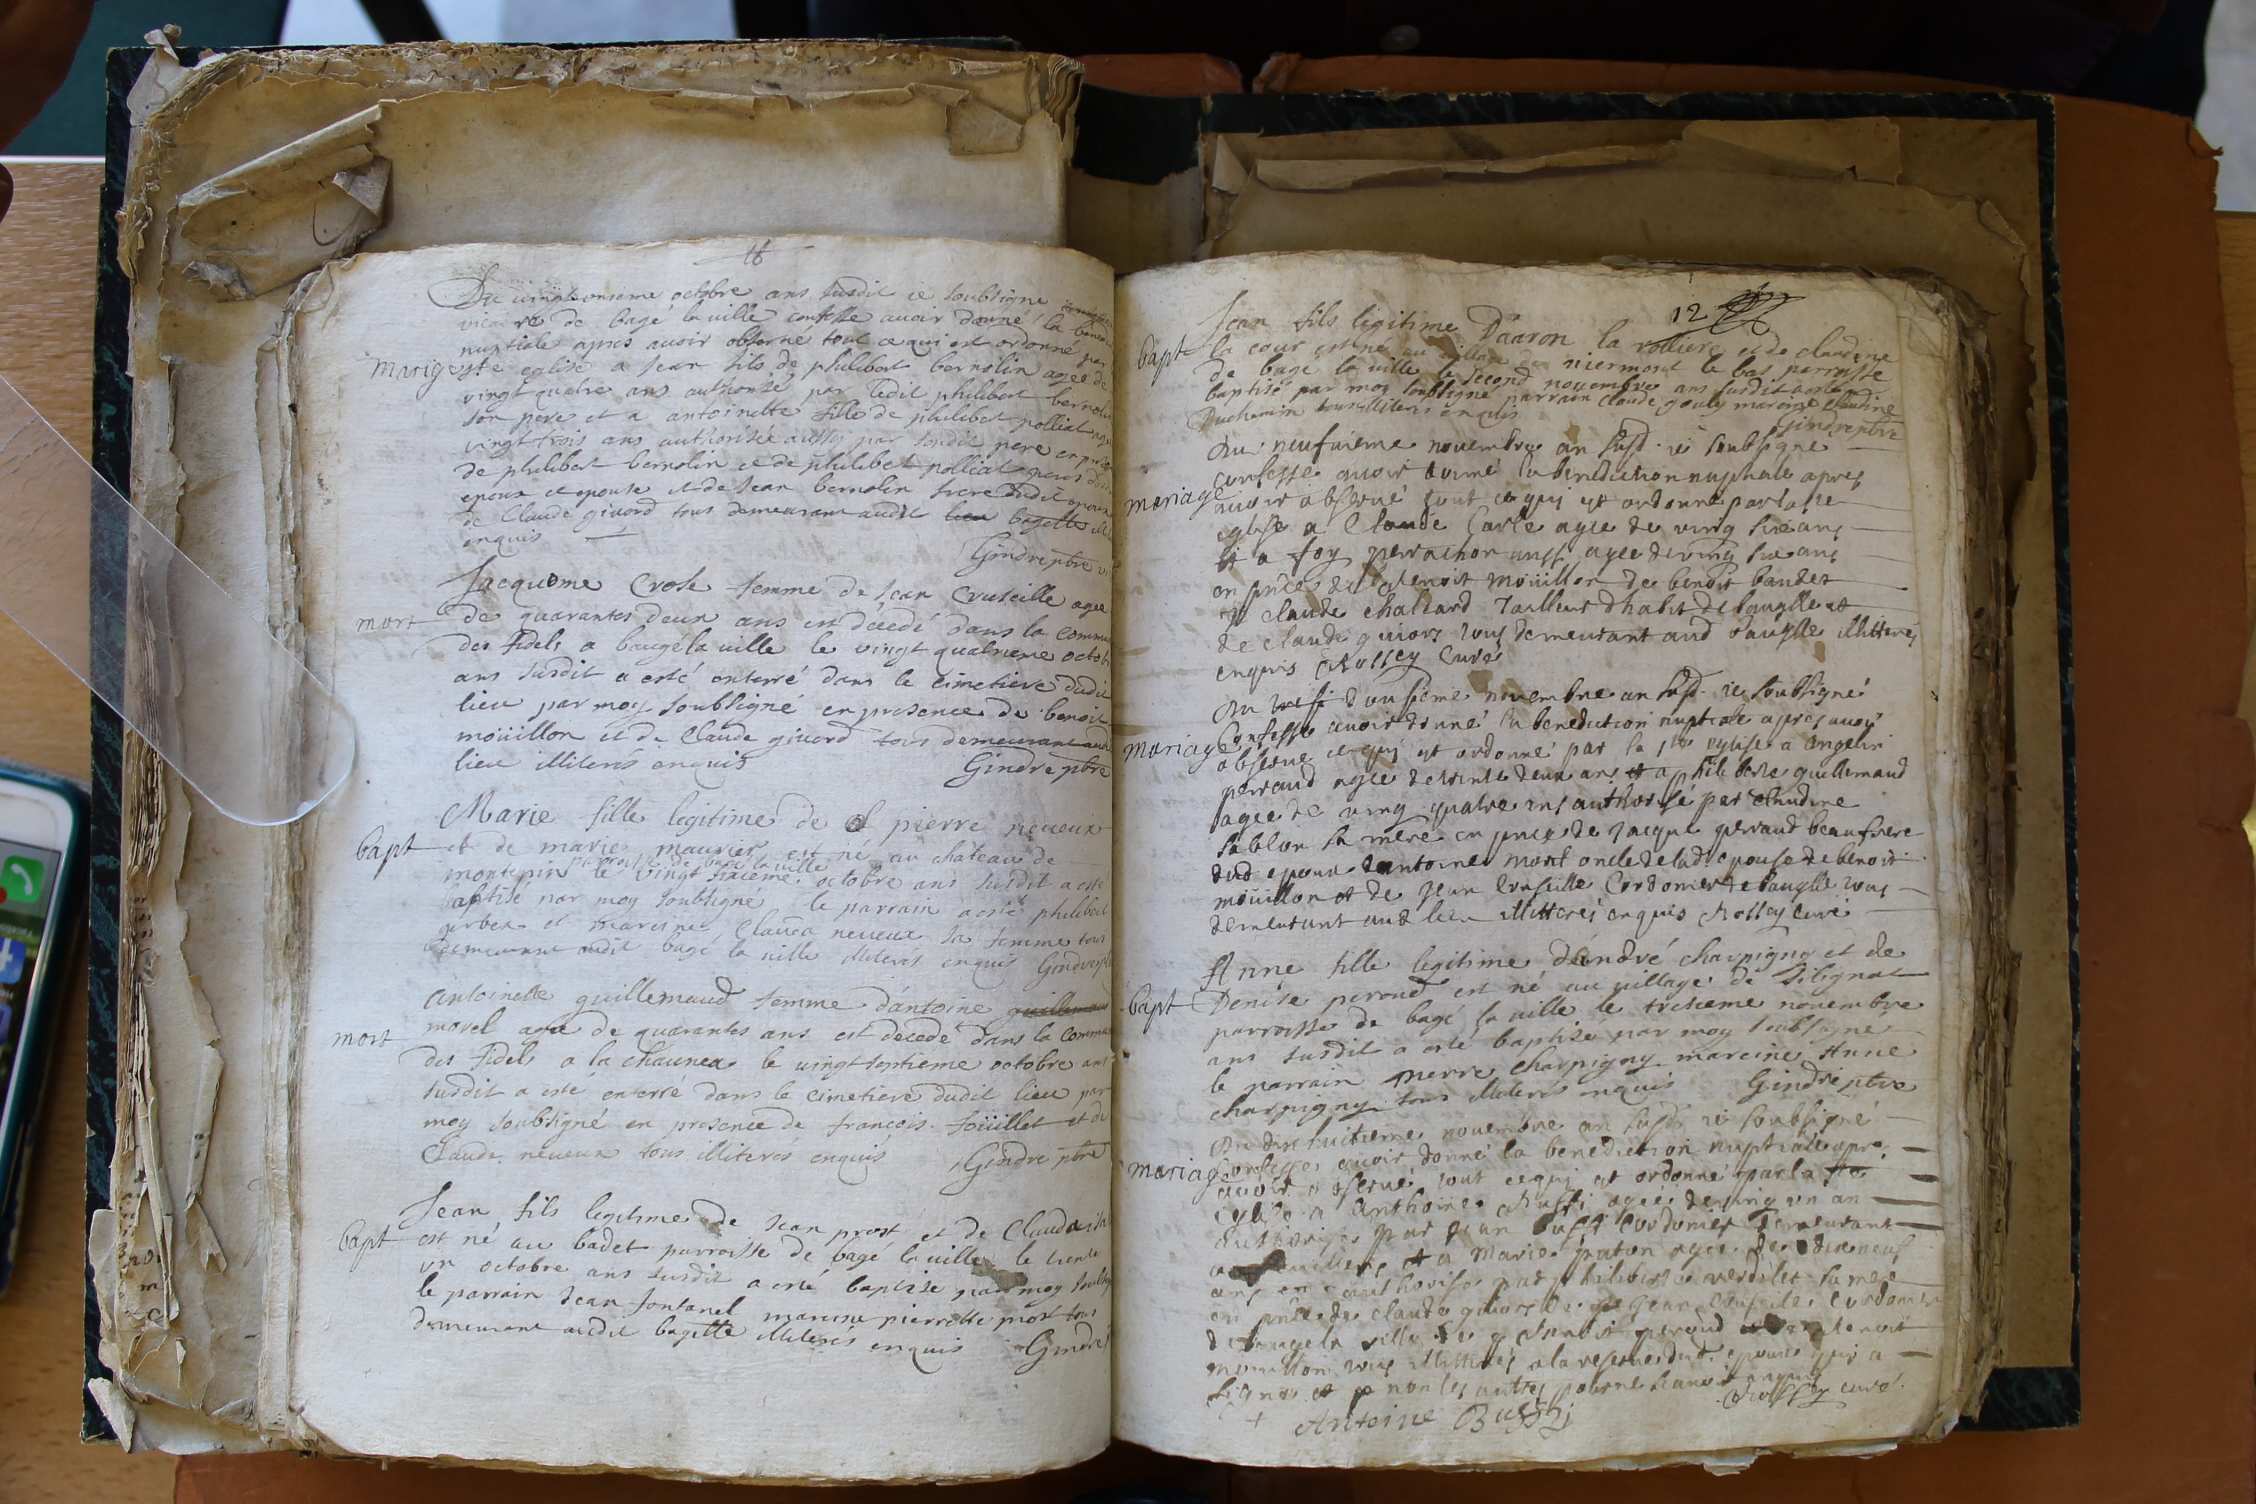 Du vingt onsieme octobre ans susdit ie soubsigne
vicaire de bagé la ville confesse avoir donné la
nuptiale apres avoir observé tout ce qui est ordonné par
Mariage
ste eglise a Jean fils de philibert bernolin agée de
vingt quatre ans authorisé par ledit philibert bernolin
son pere et a antoinette fille de philibert polliat
vingt trois ans authorisée aussy par sondit pere en
de philibert bernolin et de philibert polliat peres
epoux et epouse et de Jean bernolin frere dudit epoux
de Claude givord tous demeurant audit lieu bagelle
enquis
Gindre pbre
Jacqueme Crose femme de Jean Cruseille agee
mort
de quarantes deux ans est décédé dans la
des fidels a baugé la ville le vingt quatrieme
ans susdit a esté enterré dans le cimetiere dudit
lieu par moy soubsigné en presence de benoit
moüillon et de Claude givord tous demeurant audit
lieu illiterés enquis
Gindre pbre
Marie fille legitime de pierre neveux
bapt
et de marie maurier est né au chateau de
parroisse de bagé la ville
montepin le vingt sixieme octobre ans susdit a esté
baptisé par moy soubsigné le parrain a esté philibert
gerbex et mareine Clauda neveux sa femme tous
demeurant audit bagé la ville illiterés enquis Gindre
antoinette guillemaud femme d'antoine guillemaud
mort
morel agée de quarantes ans est decedé dans la
des fidels a la chaunea le vingt septieme octobre ans
susdit a esté enterré dans le cimetiere dudit lieu par
moy soubsigné en presence de francois foüillet et de
Claude neveux tous illiterés enquis
Gindre pbre
Jean fils legitime de Jean prost et de Clauda
bapt
est né au badet parroisse de bagé la ville le trente
un octobre ans susdit a esté baptise par moy
le parrain Jean fontanel mareine pierrette prost tous
demeurant audit bagelle illiterés enquis Gindre
12
Jean fils legitime D'aaron la rolliere et de claudine
bapt
la cour est né au village de niermont le bas parroisse
de bagé la ville le second novembre ans susdit a esté
baptisé par moy soubsigné parrain claude gouly mareine claudine
Duchemin tous illiterés enquis
Gindre pbre
Du neufvieme novembre an susd. ie soubsigne
confesse avoir donné la benediction nuptiale apres
mariage
avoir observé tout ce qui est ordonné par la ste
eglise a Claude Carle agee de ving six ans
et a foy perrachon agee de ving six ans
en pnce de benoit moüillon de benoit bandet
de claude chaltard Tailleur dhabit de baugelle et
de claude guiord tous demeurant aud baugelle illitteres
enquis Rolley Curé
Du douzieme novembre an susd. ie soubsigné
Confesse avoir donné la benediction nuptiale apres avoir
mariage
observe ce qui est ordonné par la ste eglise a angelin
perraud agee de trente deux ans et a philiberte guillemaud
agee de ving quatre ans authorisé par Claudine
sablon sa mere en pnce de Jacque perraud beaufrere
dud epoux dantoine morel oncle de lad epouse de benoit
moüillon et de Jean Cruseille Cordonier de baugelle tous
demeurant aud lieu illitterés enquis Rolley curé
Anne fille legitime d'andré charpigny et de
bapt
Denise peroud est né au village de silignat
parroisse de bagé la ville le treisieme novembre
ans susdit a esté baptisé par moy soubsigne
le parrain pierre charpigny mareine Anne
charpigny tous illiterés enquis Gindre pbre
Du dix huitieme novembre an susdt ie soubsigné
Confesse avoir donné la benediction nuptiale apre.
mariage
avoir observé tout ce qui est ordonné par la ste
eglise a anthoine Bussi agée de ving un an
authorisé par Jean bussi Cordonier demeurant
a et a Marie paton agee de dix neuf
ans authorisé par philiberte verdelet sa mere
en pnce de claude guiord de Jean Cruseille Cordonier
de baugela ville de benoit peroud et de benoit
moüillon tous illitterés a la reserve dud. epoux qui a
signé et non les autres pour ne scavoir enquis
Rolley curé
Antoine Bussi